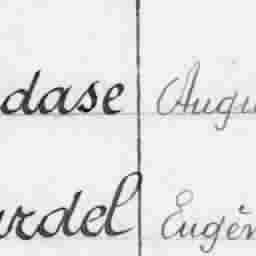 dase Augu
urdel Eugèn